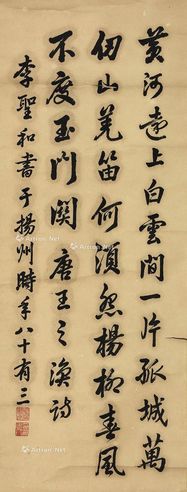 黄河遠上白雲間一片孤城萬
仞山羌笛何須怨楊柳春風
不度玉门関唐王之渙詩
李聖和書于揚州時年八十有三